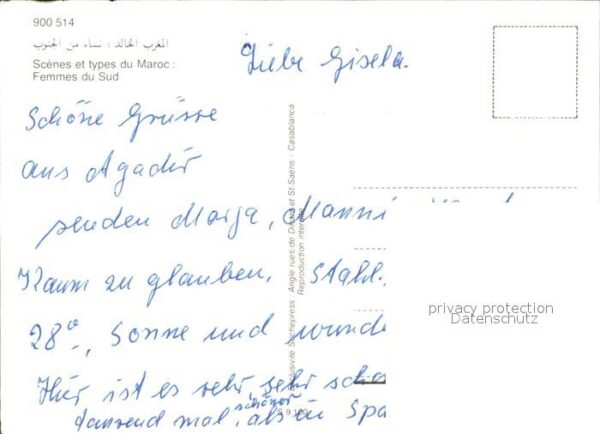 900 514
المغرب الخالد : نساء من الجنوب
Scènes et types du Maroc :
Femmes du Sud
Liebe Gisela.
Schöne Grüsse
aus Agadir
senden Marga, Manni
Kaum zu glauben,
28°, Sonne und
Hier ist es sehr, sehr
schöner
tausend mal, als in
Exclusivité Sochepress - Angle rues de Dinant et St Saëns - Casablanca
Reproduction interdite
privacy protection
Datenschutz